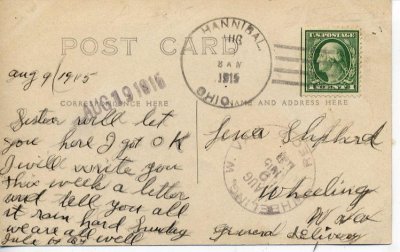 POST CARD
HANNIBAL
AUG
9
1915
OHIO
U.S. POSTAGE
1 CENT 1
aug 9/1915
AUG 19 1915
CORRESPONDENCE HERE
NAME AND ADDRESS HERE
Sister will let
you here I got OK
I will write you
this week a letter
and tell you all
it rain hard Sunday
we are all well
Lena Shepherd
Wheeling
W Va
general delivery
WHEELING, W. VA.
AUG
1915